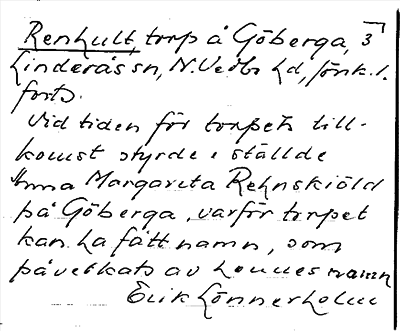 Renhult, torp å Göberga, 3
Linderås sn, N. Vedbo hd, Jönk. l.
forts.
Vid tiden för torpets till-
komst styrde i stället
Anna Margareta Rehnskiöld
på Göberga, varför torpet
kan ha fått namn, som
påverkats av hennes namn
Erik Lönnerholm